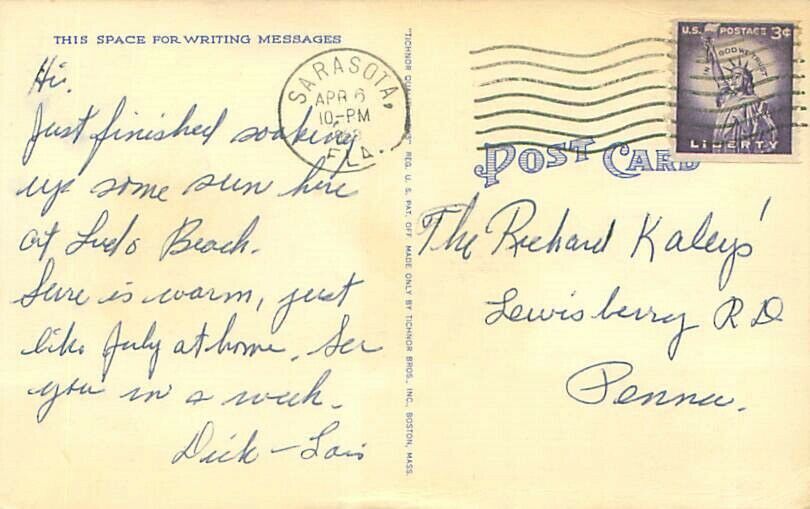 THIS SPACE FOR WRITING MESSAGES
Hi.
Just finished soaking
up some sun here
at Lido Beach.
Sure is warm, just
like July at home. See
you in a week.
Dick - Lois
SARASOTA,
APR 6
10-PM
FLA.
"TICHNOR QUALITY REG. U. S. PAT. OFF. MADE ONLY BY TICHNOR BROS., INC., BOSTON, MASS.
U.S. POSTAGE 3¢
IN GOD WE TRUST
LIBERTY
POST CARD
The Richard Kaleys'
Lewisberry R D
Penna.